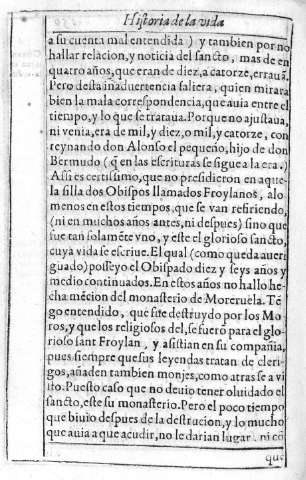 Historia de la vida
a su cuenta mal entendida ) y tambien por no
hallar relacion, y noticia del sancto, mas de en
quatro años, que eran de diez, a catorze, errauã.
Pero desta inaduertencia saliera, quien mirara
bien la mala correspondencia, que auia entre el
tiempo, y lo que se trataua. Porque no ajustaua,
ni venia, era de mil, y diez, o mil, y catorze, con
reynando don Alonso el pequeño, hijo de don
Bermudo ( q̃ en las escrituras se sigue a la era. )
Assi es certissimo, que no presidieron en aque-
lla silla dos Obispos llamados Froylanos, alo
menos en estos tiempos, que se van refiriendo,
(ni en muchos años antes, ni despues) sino que
fue tan solamẽte vno, y este el glorioso sancto,
cuya vida se escriue. El qual (como queda aueri
guado) posseyo el Obispado diez y seys años y
medio continuados. En estos años no hallo he-
cha mẽcion del monasterio de Moreruela. Tẽ
go entendido, que fue destruydo por los Mo-
ros, y que los religiosos del, se fuerõ para el glo-
rioso sant Froylan, y asistian en su compañia,
pues siempre que sus leyendas tratan de cleri-
gos, añaden tambien monjes, como atras se a vi
sto. Puesto caso que no deuio tener oluidado el
sancto, este su monasterio. Pero el poco tiempo
que biuio despues de la destrucion, y lo mucho
que auia a que acudir, no le darian lugar. ni cõ
que